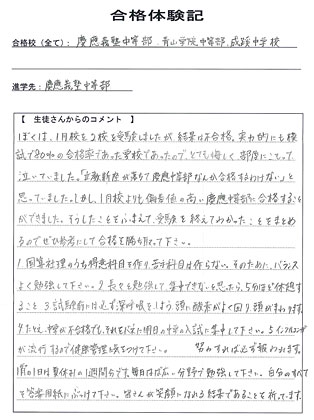 合格体験記
合格校（全て）：慶應義塾中等部 青山学院中等部 成蹊中学校
進学先：慶應義塾中等部
【 生徒さんからのコメント 】
ぼくは、1月校を2校を受験しましたが、結果は不合格。実力的にも模
試で80%の合格率であった学校であったので、とても悔しく部屋にこもって
泣いていました。「立教新座が落ちて慶應中等部なんか合格するわけない」と
思っていました。しかし、1月校よりも偏差値の高い慶應中等部に合格することが
できました。そうしたことをふまえて、受験を終えてわかったことをまとめ
るのでぜひ参考にして合格を勝ち取って下さい。
1 国算社理のうち得意科目を作り苦手科目は作らない。そのために、バランス
よく勉強して下さい。2 長々と勉強して集中できないと思ったら、5分ほど休憩す
ること 3 試験前には必ず深呼吸をしよう。頭に酸素がよく回り頭がまわります。
4 たとえ、神校が不合格でも、それをバネに明日の中学の入試に集中して下さい。5 インフルエンザ
が流行するので健康管理に気をつけて下さい。 努力すれば必ず報われます。
1月1日は夏休みの1週間分です。毎日はば広い分野で勉強して下さい。自分のすべて
を答案用紙にぶつけて下さい。皆さんが笑顔になれる結果であることを祈ってます。